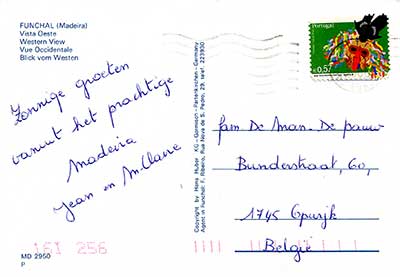 FUNCHAL (Madeira)
Vista Oeste
Western View
Vue Occidentale
Blick vom Westen
Zonnige groeten
vanuit het prachtige
Madeira
Jean en
MD 2950
P
161 256
Copyright by Hans Huber KG - Garmisch-Partenkirchen - Germany
Agent in Funchal: F. Ribeiro, Rua Nova de S. Pedro, 29, telef. 223930
Portugal
€0,57
fam De Man. De pauw
Bunderstraat, 60,
1745 Opwijk
België